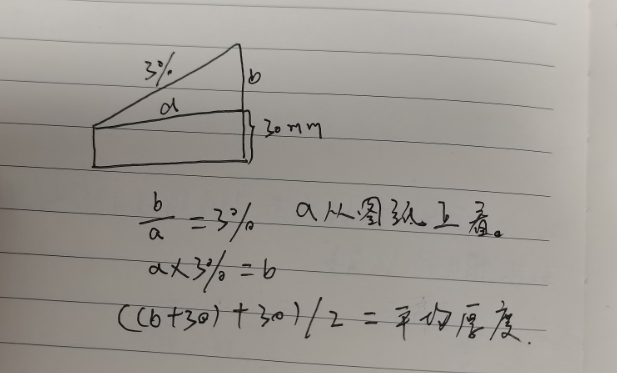 3%
b
a
30mm
b/a = 3% a从图纸上看。
a×3% = b
((b+30)+30)/2 = 平均厚度.